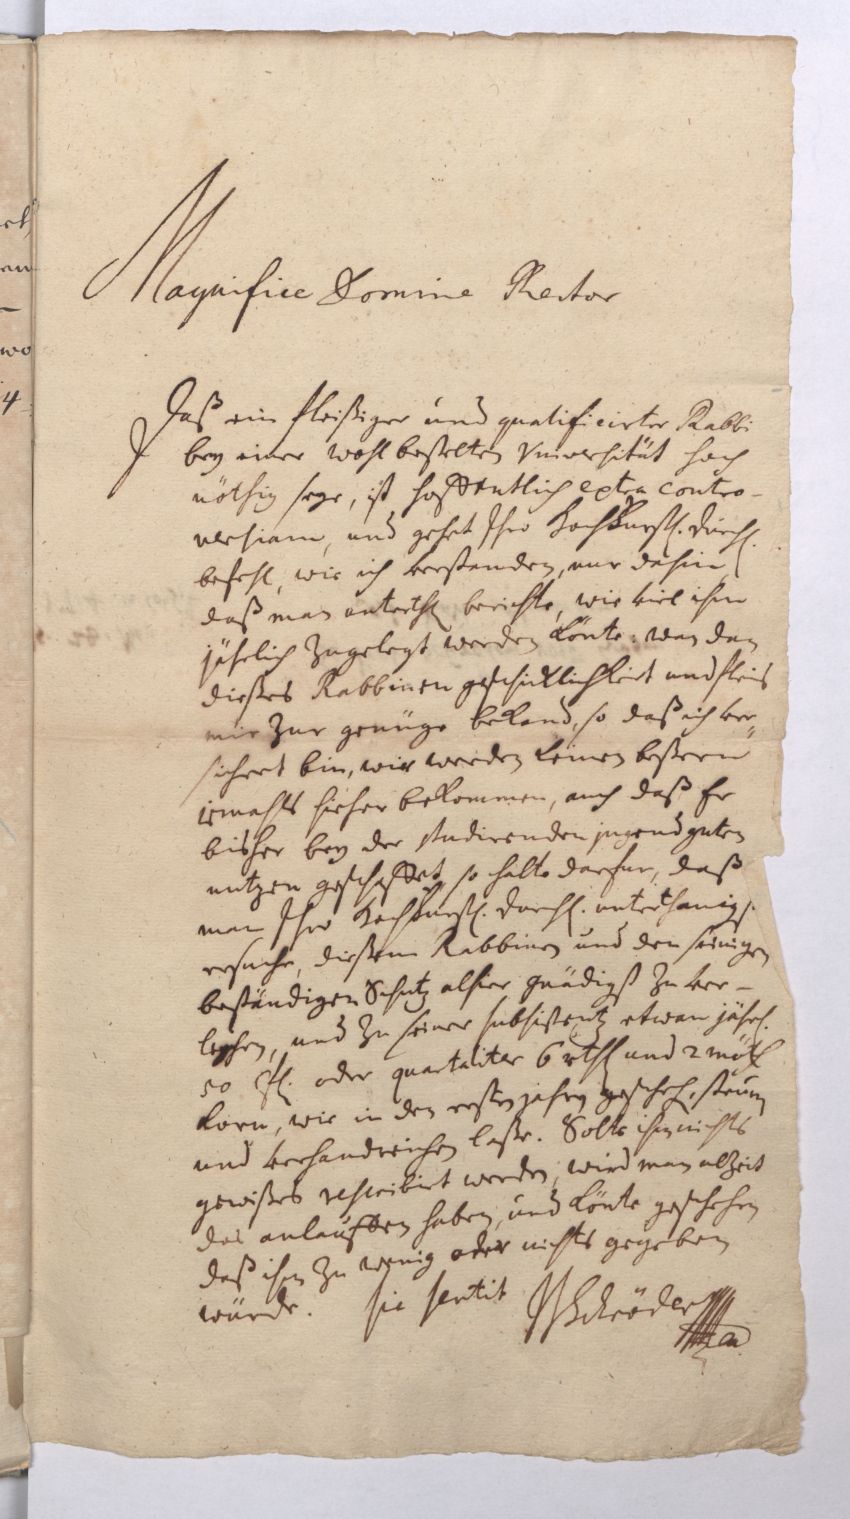 Magnifice Domine Rector
Daß ein fleißiger und qualificirter Rabbi
bey einer wohl bestelten Vniversität hoch
nöthig seye, ist hoffentlich extra contro-
versiam, und gehet Ihro Hochfürstl. Durchl.
befehl, wie ich verstanden, nur dahin
daß man unterthl berichte, wie viel ihm
jährlich zugelegt werden könte: wan dan
dießes Rabbinen geschicklichkeit und fleis
mir zur genüge bekand, so daß ich ver-
sichert bin, wir werden keinen beßern
jemahls hieher bekommen, auch daß Er
bisher bey der studirenden jugend guten
nutzen geschaffet, so halte darfur, daß
man Ihro Hochfürstl. Durchl. unterthänigst
ersuche, dießem Rabbinen und den seinigen
beständigen Schutz alhier gnädigst zu ver-
leyhen, und zu seiner subsistentz etwan jährl.
50 fl. oder quartaliter 6 rthl und 2 mött
Korn, wie in den ersten jahren geschehen,
und verhandreichen laße. Solte ihm nichts
gewißes rescribirt werden, wird man alzeit
das anlauffen haben, und könte geschehen
daß ihm zu wenig oder nichts gegeben
würde. sic sentit JSchröder